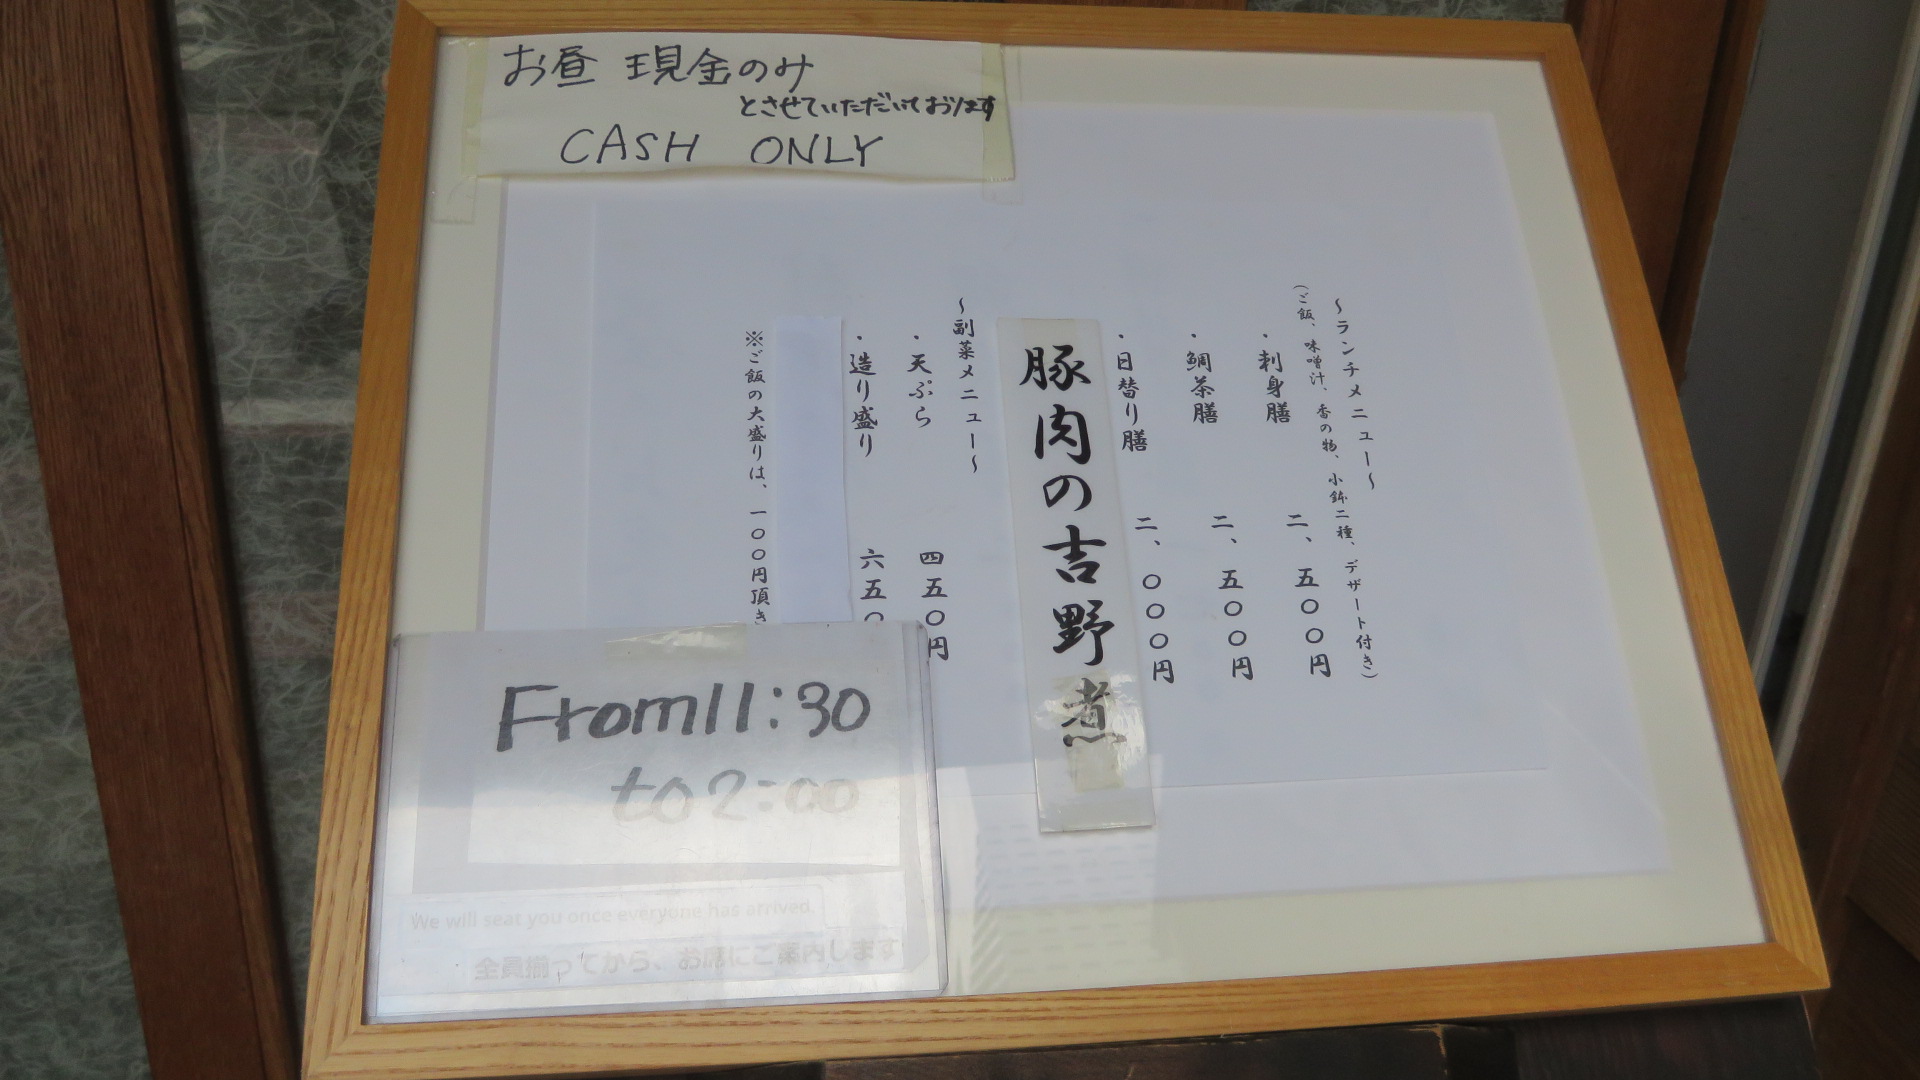 お昼 現金のみ
とさせていただいております
CASH ONLY
〜ランチメニュー〜
(ご飯、味噌汁、香の物、小鉢二種、デザート付き)
・刺身膳 二、五〇〇円
・鯛茶膳 二、五〇〇円
・日替り膳 二、〇〇〇円
豚肉の吉野煮
〜副菜メニュー〜
・天ぷら 四五〇円
・造り盛り 六五〇
※ご飯の大盛りは、一〇〇円頂き
From 11:30
to 2:00
We will seat you once everyone has arrived.
全員揃ってから、お席にご案内します